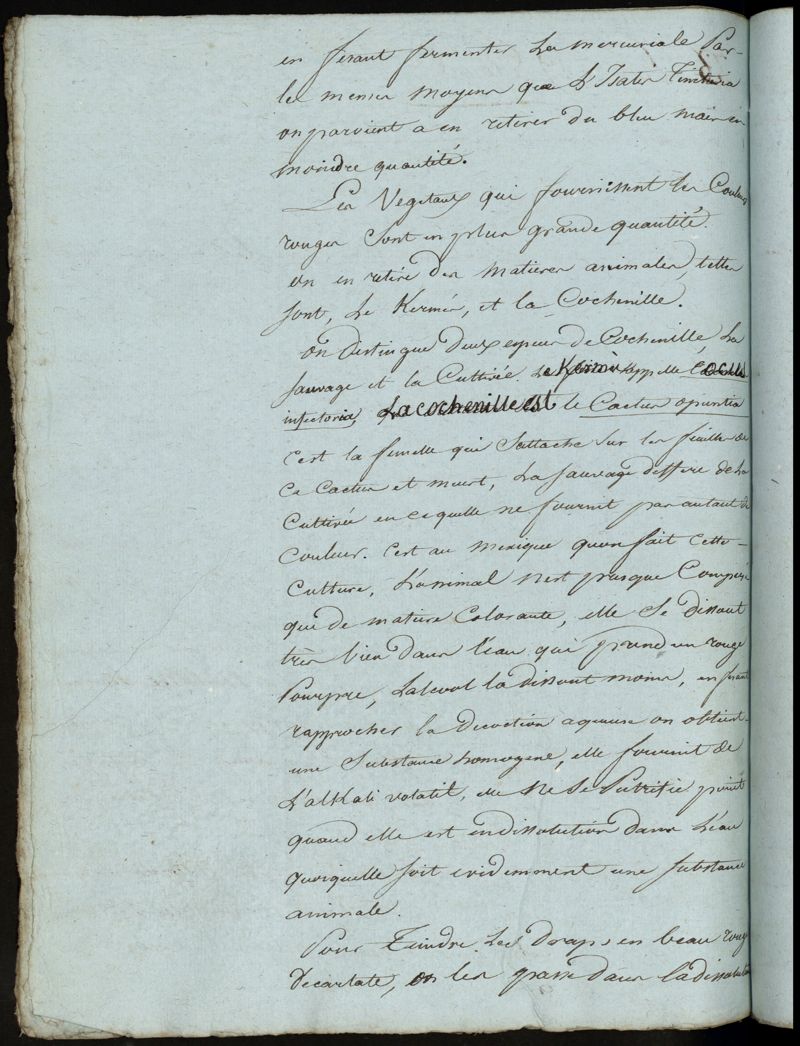 en fesant fermenter la mercuriale Par-
les memes moyens que L'Isatis Tinctoria
on parvient a en retirer du bleu mais en
moindre quantité.
Les Vegetaux qui fournissent les Couleurs
rouges sont en plus grande quantité.
on en retire des matieres animales, telles
sont, Le Kermès, et la Cochenille.
on distingue deux especes de Cochenille, La
sauvage et la Cultivée. Le Kermès appelle
infectoria, La cochenille est le Cactus opuntia
c'est la femelle qui s'attache sur les feuilles de
ce Cactus et meurt, La sauvage differe de La
Cultivée en ce quelle ne fournit pas autant de
Couleur. C'est au mexique quon fait cette-
Culture, L'animal n'est presque Composé
que de matiere Colorante, elle se dissout
très bien dans l'eau qui prend un rouge
Pourpre, L'alcool la dissout moins, en fesant
rapprocher la decoction aqueuse on obtient-
une substance homogene, elle fournit de
L'alKali volatil, elle ne se Putrifie point
quand elle est en dissolution dans L'eau
quoiquelle soit evidemment une substance
animale.
Pour Teindre Les Draps en beau rouge
Decarlate, on les passe dans la dissolution